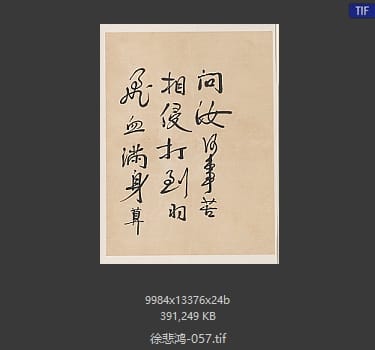 TIF
问汝何事苦
相侵打到羽
飛血滿身算
9984x13376x24b
391,249 KB
徐悲鸿-057.tif